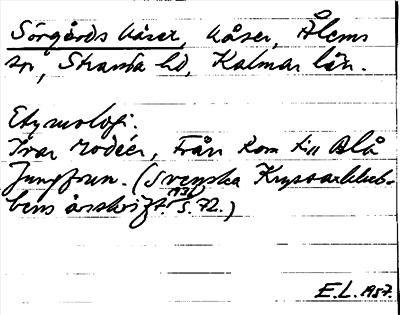 Sörgårds kåser, kåser, Ålems
sn, Stranda hd, Kalmar län.
Etymologi.
Ivar Modéer, Från Kom till Blå
Jungfrun. (Svenska Kryssarklub-
bens årsskrift 1936, s. 72.)
E.L. 1957.